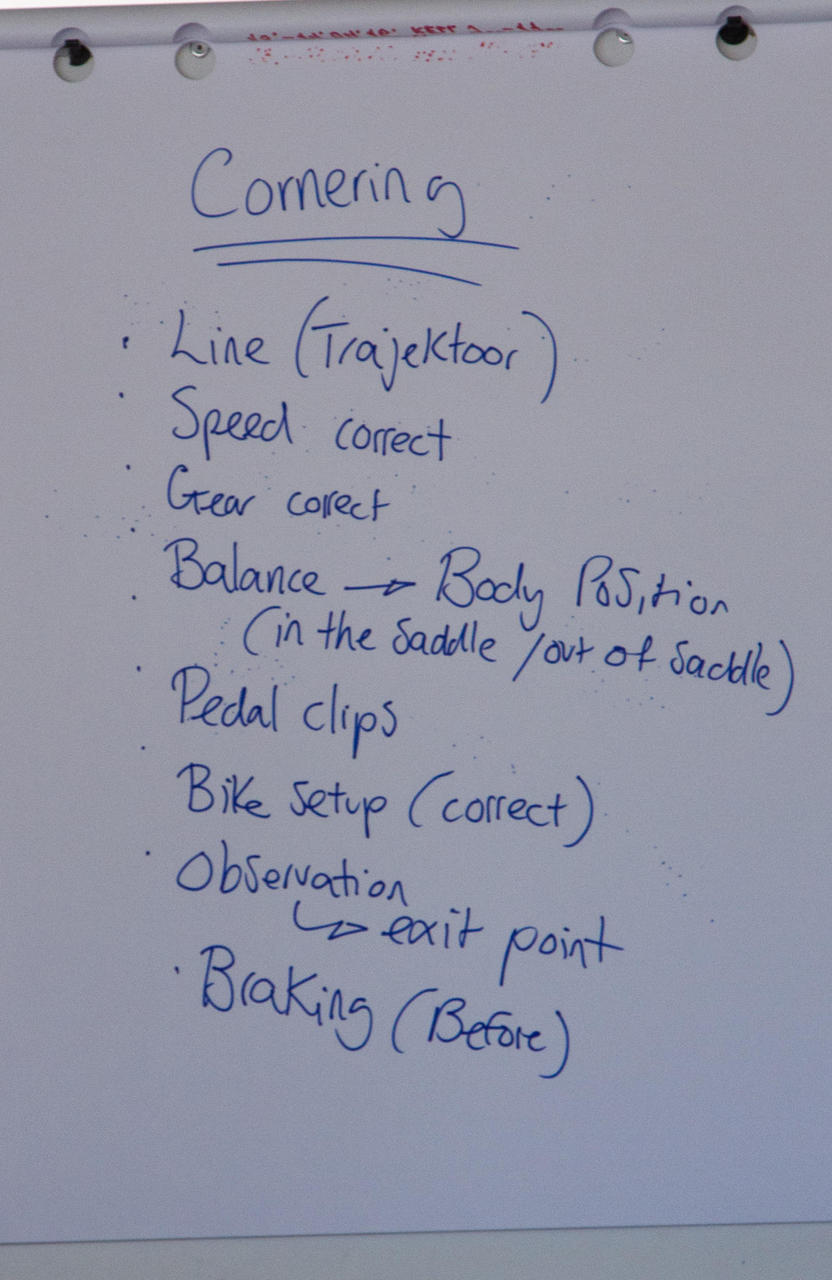 Cornering
· Line (Trajektoor)
· Speed correct
· Gear corect
· Balance → Body Position
(in the saddle / out of saddle)
· Pedal clips
· Bike setup (correct)
· Observation
↳ exit point
· Braking (Before)